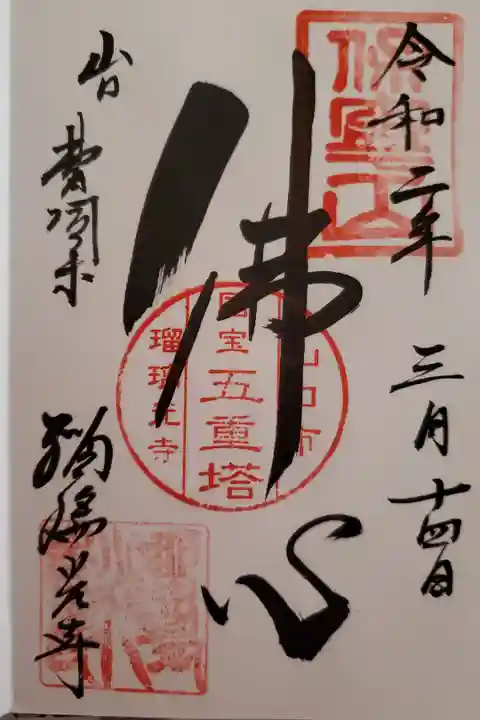 令和二年 三月十四日
保寧山
佛心
山口市
国宝
五重塔
瑠璃光寺
山口 曹洞宗
瑠璃光寺